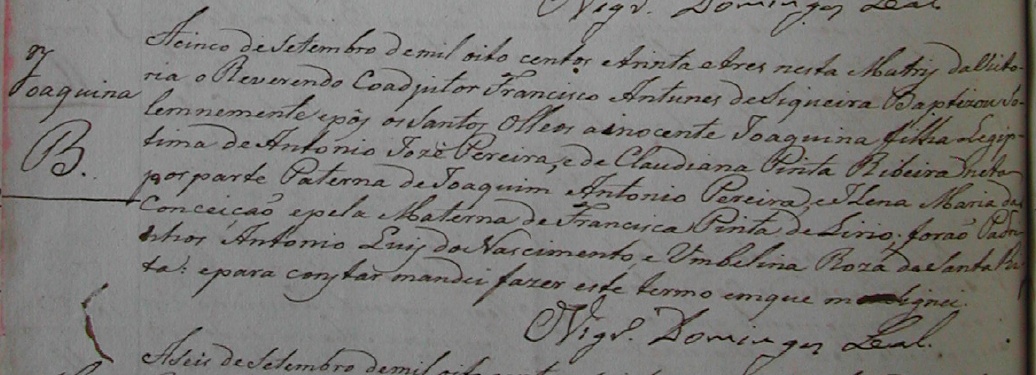 Vigr. Domingos Leal
Joaquina
B.
A cinco de Setembro de mil oito centos etrinta etres nesta Matriz da Victo-
ria o Reverendo Coadjutor Francisco Antunes de Siqueira Baptizou so-
lemnemente epôs os Santos Olleos a inocente Joaquina filha Legip-
tima de Antonio Jozè Pereira, e de Claudiana Pinta Ribeira neta
por parte Paterna de Joaquim Antonio Pereira, e Ilena Maria da
Conceição epela Materna de Francisca Pinta de Lirio; forão Padri-
nhos Antonio Luiz do Nascimento e Umbelina Roza da Santa Ri-
ta: epara constar mandei fazer este termo emque me asignei.
Vigr. Domingos Leal.
A Seis de Setembro de mil oito